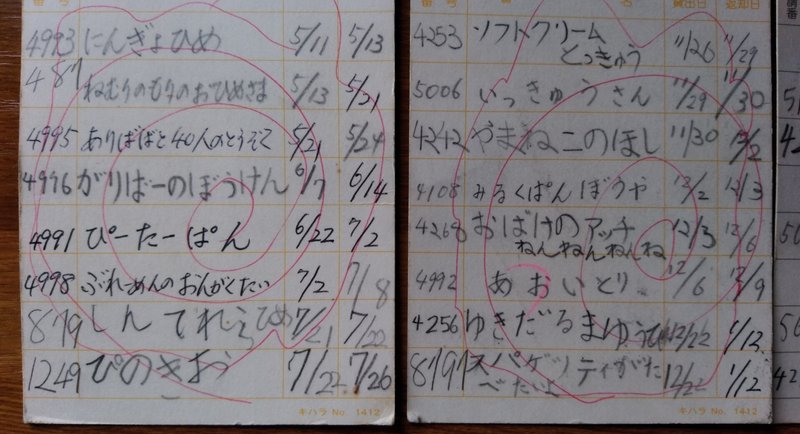 4993 にんぎょひめ 5/11 5/13
487 ねむりのもりのおひめさま 5/13 5/21
4995 ありばばと40人のとうぞく 5/21 5/24
4996 がりばーのぼうけん 6/7 6/14
4991 ぴーたーぱん 6/22 7/2
4998 ぶれーめんのおんがくたい 7/2 7/8
879 しんでれらひめ 7/21 7/22
1249 ぴのきお 7/22 7/26
キハラ No. 1412
貸出日 返却日
4253 ソフトクリーム
とっきゅう 11/26 11/29
5006 いっきゅうさん 11/29 11/30
4242 やまねこのほし 11/30 12/2
4108 みるくぱんぼうや 12/2 12/3
4268 おばけのアッチ 12/3 12/6
ねんねんねんね
4992 あおいとり 12/6 12/9
4256 ゆきだるまゆうびん 12/22 1/12
8797 スパゲッティがた
べたいよ 12/22 1/12
キハラ No. 1412